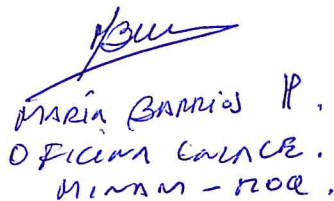 MARÍA BARRIOS P.
OFICINA ENLACE.
MINAM - MOQ.